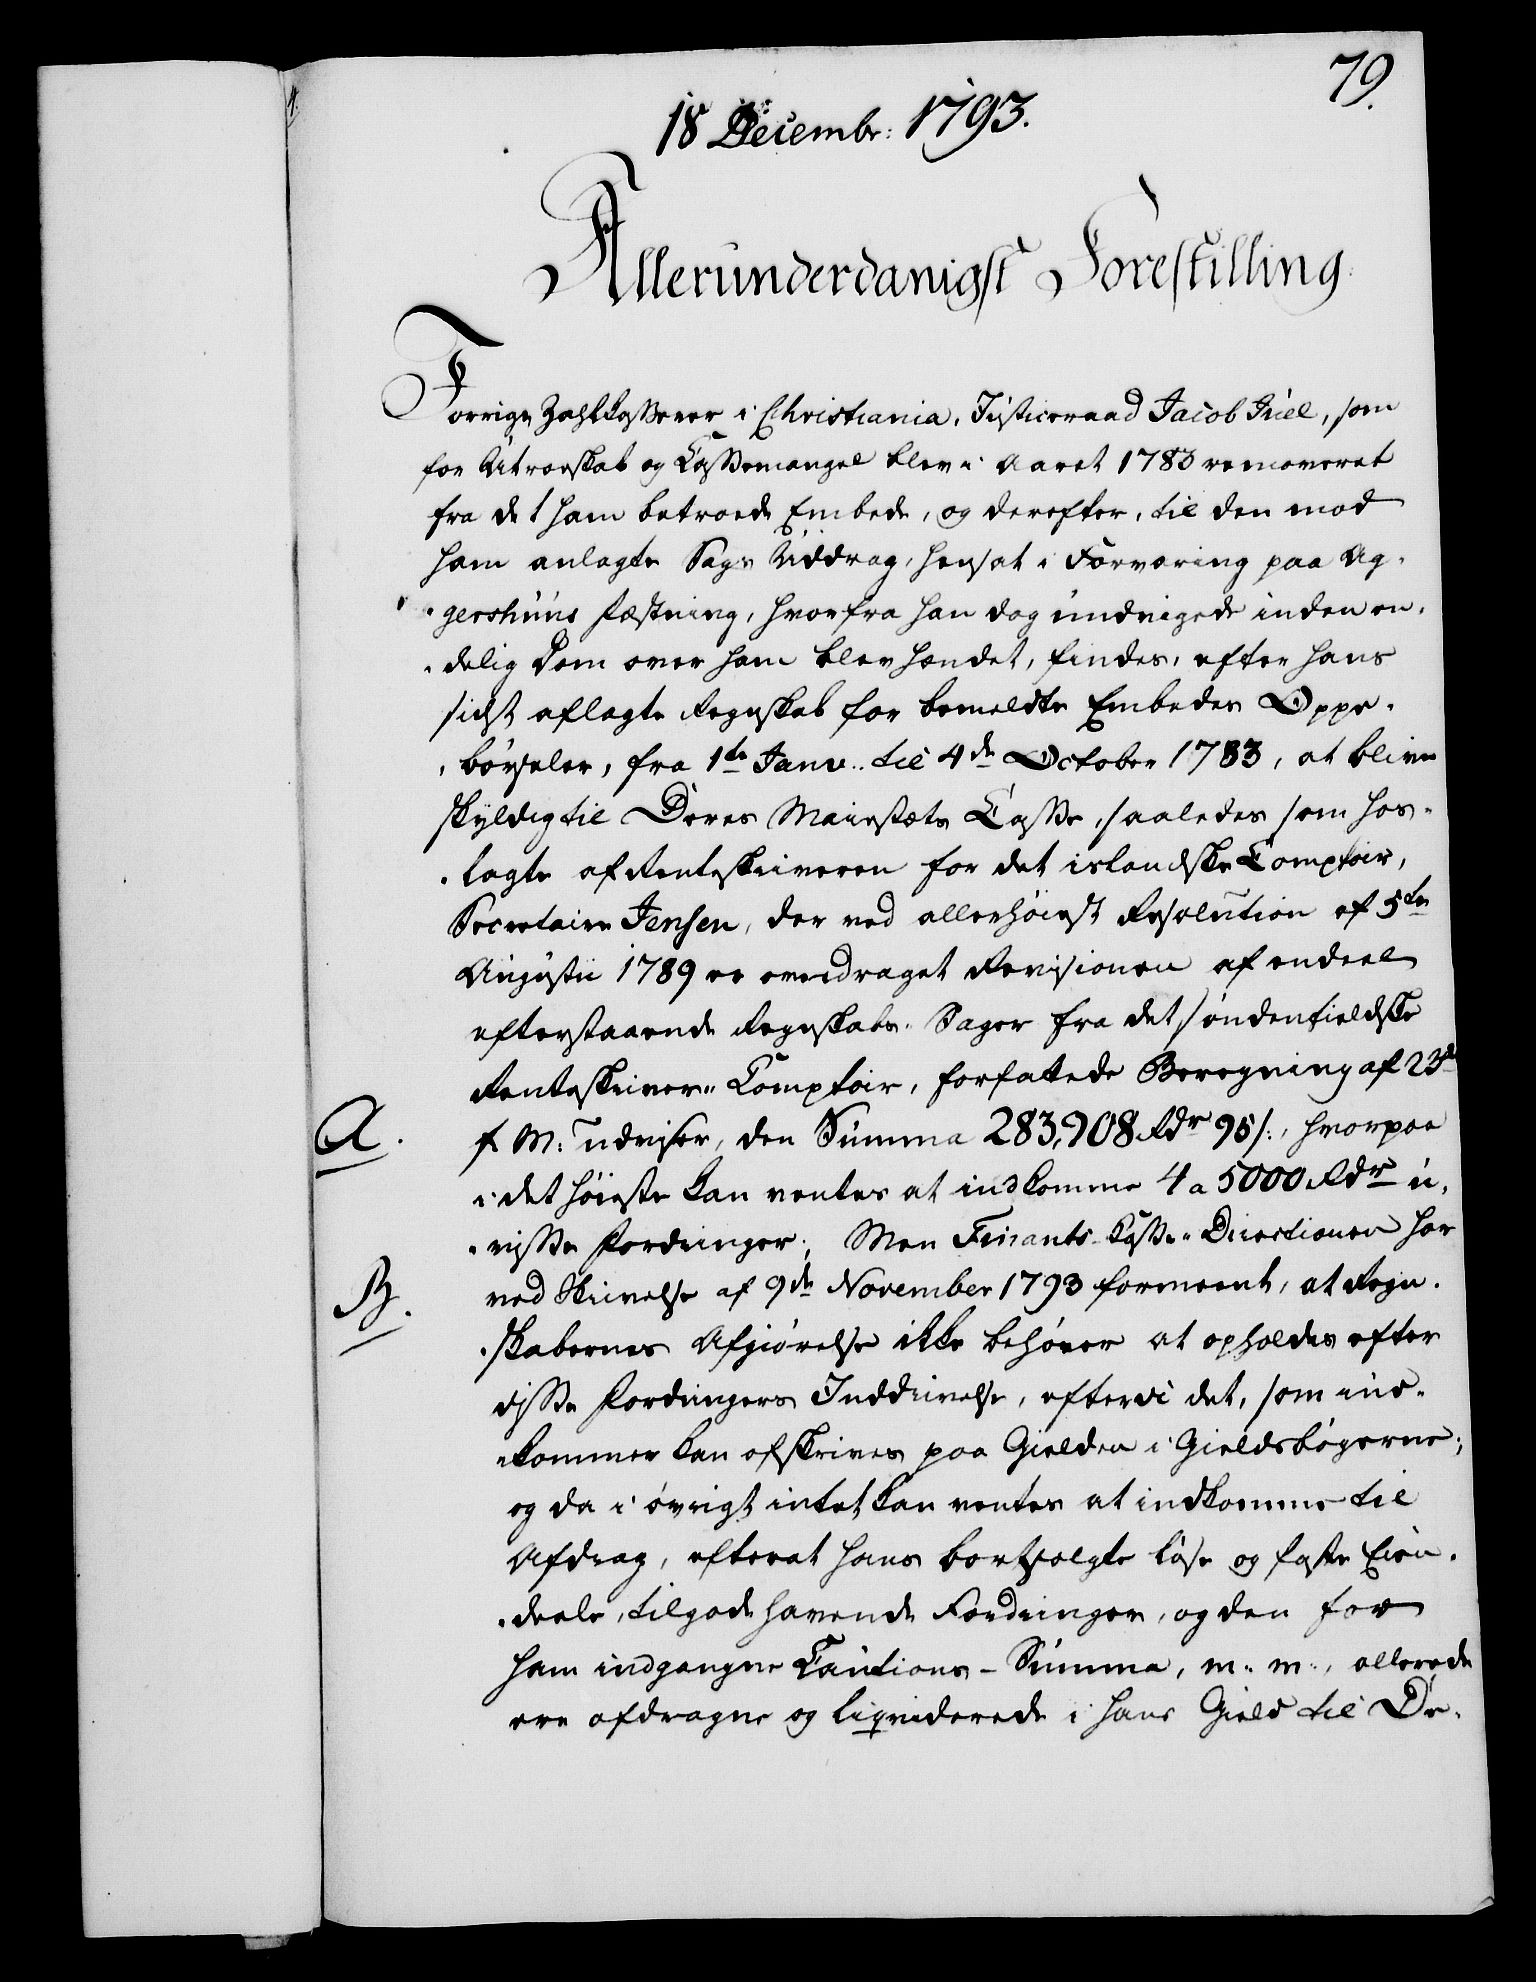 79.
18 Decembr: 1793.
Allerunderdanigst Forestilling.
Forrige Zahlkasserer i Christiania, Justiceraad Jacob Juel, som
for Utroeskab og Cassemangel blev i Aaret 1783 removeret
fra det ham betroede Embede, og derefter, til den mod
ham anlagte Sags Uddrag, hensat i Forvaring paa Ag-
gershuus Fæstning, hvorfra han dog undvigede inden en-
delig Dom over ham blev hændet, findes, efter hans
sidst aflagte Regnskab for bemeldte Embedes Oppe-
børseler, fra 1te Janv. til 4de October 1783, at blive
skyldig til Deres Maiestæts Casse, saaledes som hos-
lagte af Renteskriveren for det islandske Comptoir,
Secretaire Jensen, der ved allerhøiest Resolution af 5te
Augustii 1789 er overdraget Revisionen af endeel
efterstaaende Regnskabs-Sager fra det søndenfieldske
Renteskriver-Comptoir, forfattede Beregning af 23de
A.
f. M: udviser, den Summa 283,908 Rdr 95 s:, hvorpaa
i det høieste kan ventes at indkomme 4 a 5000 Rdr u-
visse Fordringer; Men Finants-Kasse-Directionen har
B.
ved Skrivelse af 9de November 1793 formeent, at Regn-
skabernes Afgiørelse ikke behøver at opholdes efter
disse Fordringers Inddrivelse, efterdi det, som ind-
kommer kan afskrives paa Gielden i Gieldsbøgerne;
og da i øvrigt intet kan ventes at indkomme til
Afdrag, efterat hans bortsolgte løse og faste Eien-
deele, tilgodehavende Fordringer, og den for
ham indgangne Cautions-Summa, m: m:, allerede
ere afdragne og liqviderede i hans Gield til De-